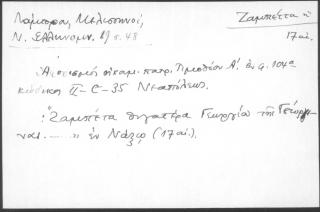 Λάμπρου, Μελισηνοί,
Ν. Ελληνομν. 19 σ. 48
Ζαμπέττα ἡ
17 αἰ.
Ἀφορισμὸς οἰκουμ. πατρ. Τιμοθέου Α΄. ἐν φ. 104α
κώδικος II-C-35 Νεαπόλεως.
:Ζαμπέτα θυγατέρα Γεωργίου τῆς
ναι. ..... " ἐν Νάξῳ (17 αἰ.).